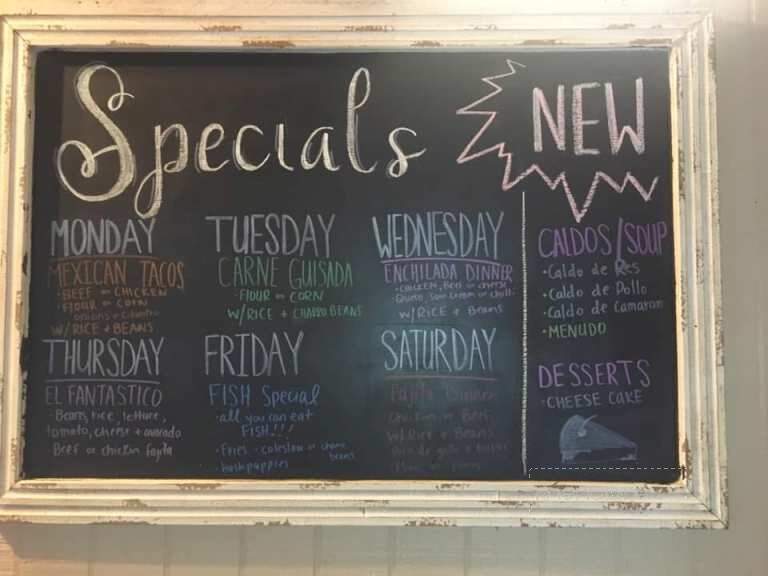 Specials
NEW
MONDAY
MEXICAN TACOS
• BEEF or CHICKEN
• FLOUR or CORN
onions + cilantro
W/RICE + BEANS
TUESDAY
CARNE GUISADA
• FLOUR or CORN
W/RICE + CHARRO BEANS
WEDNESDAY
ENCHILADA DINNER
• CHICKEN, Beef or cheese
Queso, Sour cream or chili
W/RICE + Beans
THURSDAY
EL FANTASTICO
• Beans, rice, lettuce,
tomato, cheese + avocado
Beef or chicken fajita
FRIDAY
FISH Special
• all you can eat
FISH!!!
• Fries • coleslaw or charro
beans
• hushpuppies
SATURDAY
Fajita Dinner
Chicken or Beef
W/Rice + Beans
Pico de gallo +
CALDOS/SOUP
• Caldo de Res
• Caldo de Pollo
• Caldo de Camaron
• MENUDO
DESSERTS
• CHEESE CAKE